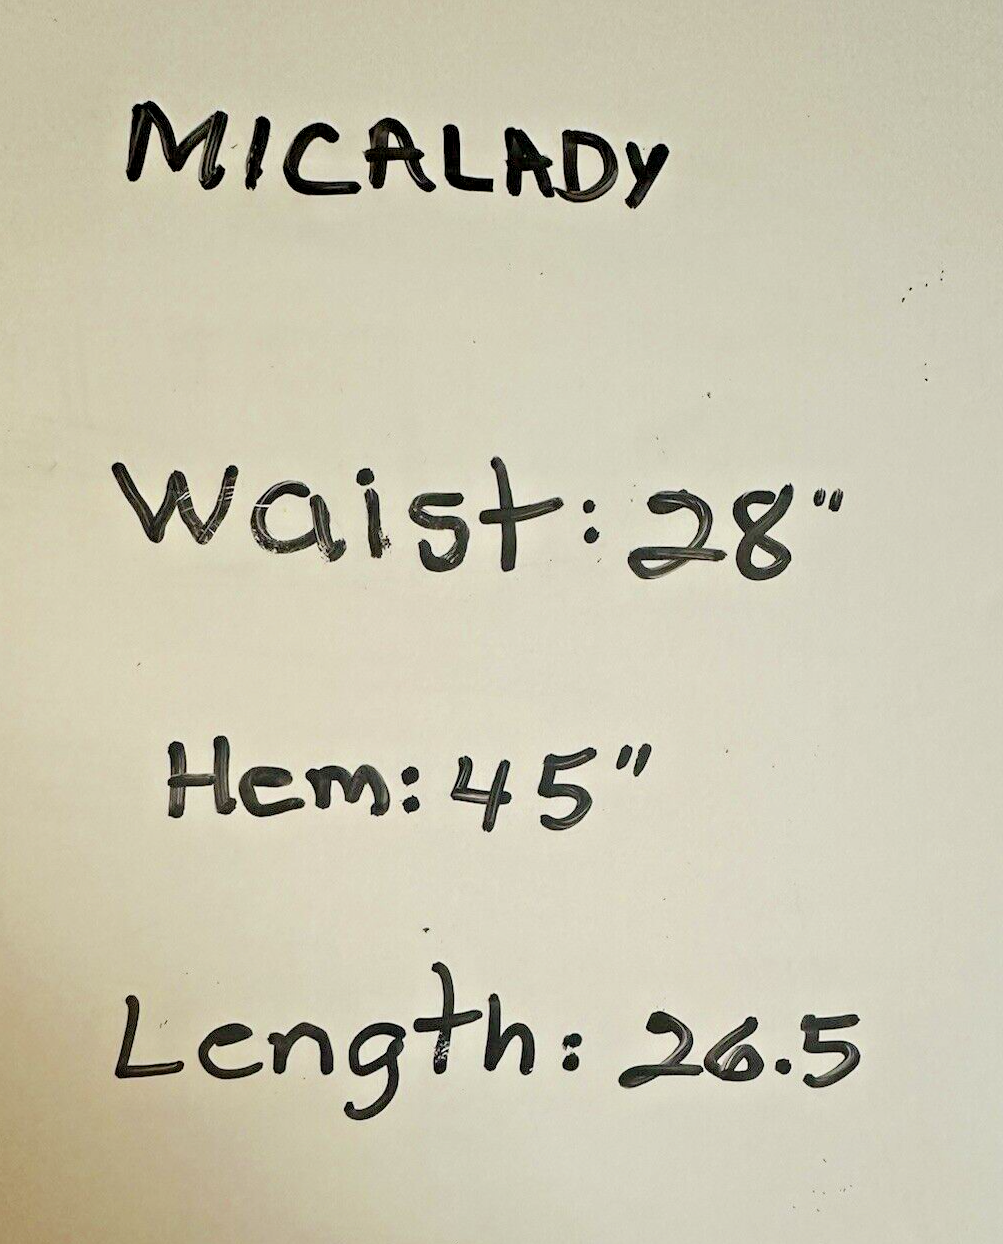 MICALADY
Waist: 28"
Hem: 45"
Length: 26.5